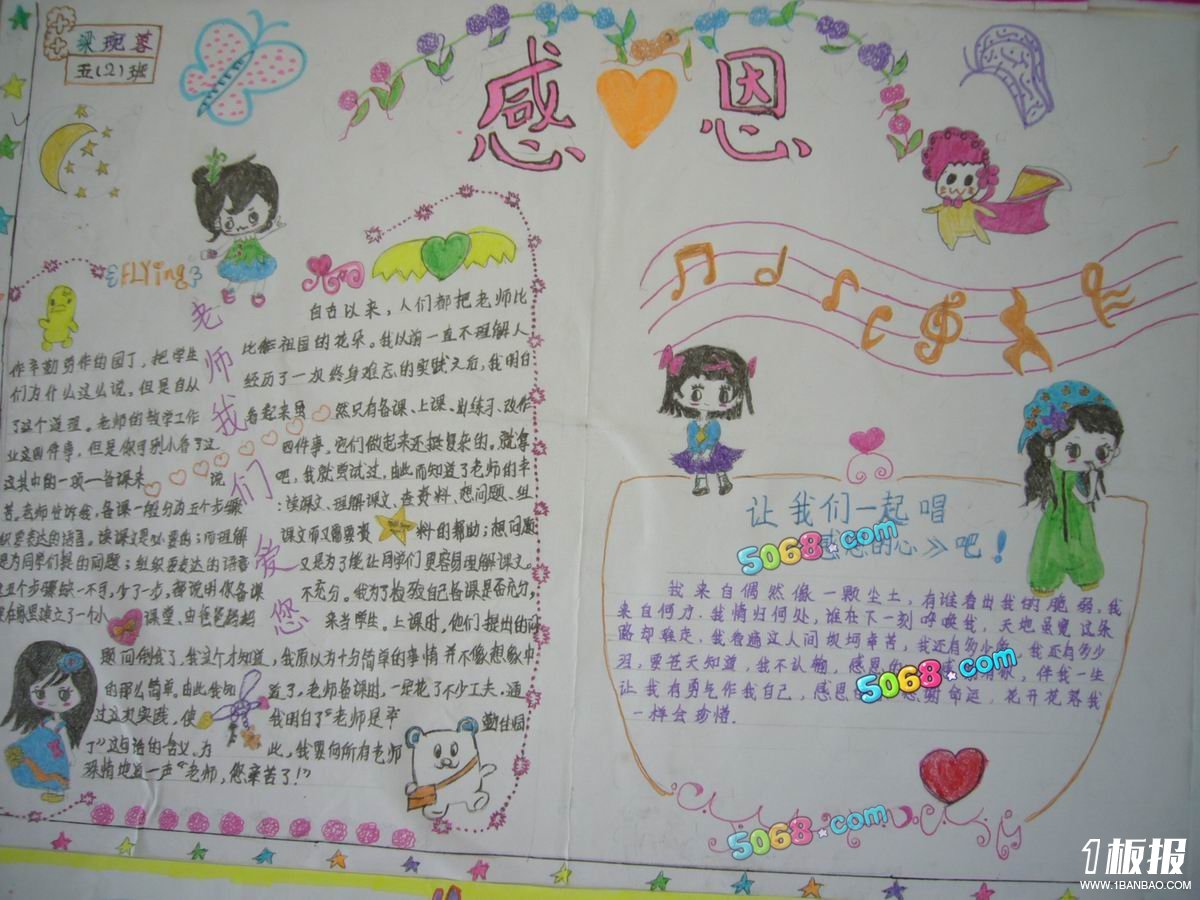 梁琬蓉
五(2)班
感恩
FLYing
老师我们爱您
自古以来，人们都把老师比
作辛勤劳作的园丁，把学生比作祖国的花朵。我以前一直不理解人
们为什么这么说，但是自从经历了一次终身难忘的实践之后，我明白
了这个道理。老师的教学工作看起来虽然只有备课、上课、出练习、改作
业这四件事，但是你可别小看了这四件事，它们做起来还挺复杂的。就拿
这其中的一项—备课来说吧，我就尝试过，由此而知道了老师的辛
苦。老师告诉我，备课一般分为五个步骤：读课文、理解课文、查资料、想问题、组
织要表达的语言。读课文是必要的；而理解课文而又需要资料的帮助；想问题
是为同学们提的问题；组织要表达的语言又是为了能让同学们更容易理解课文。
五个步骤缺一不可，少了一步，都说明你备课不充分。我为了检验自己备课是否充分，
课堂、由爸爸妈妈来当学生。上课时，他们提出的问
题问倒我了，我这个才知道，我原以为十分简单的事情并不像想象中
的那么简单。由此我知道了，老师备课时，一定花了不少工夫，通
过这次实践，使我明白了“老师是辛勤的园
丁”这句话的含义。为此，我要向所有老师
深情地道一声“老师，您辛苦了！”
让我们一起唱
感恩的心》吧！
我来自偶然像一颗尘土，有谁看出我的脆弱，我
来自何方，我情归何处，谁在下一刻呼唤我，天地虽宽这条
路却难走，我看遍这人间坎坷辛苦，我还有多少爱，我还有多少
泪，要苍天知道，我不认输，感恩的心，伴我一生
让我有勇气作我自己，感恩的感谢命运，花开花落我
一样会珍惜．
5068.com
5068.com
5068.com
1板报
WWW.1BANBAO.COM